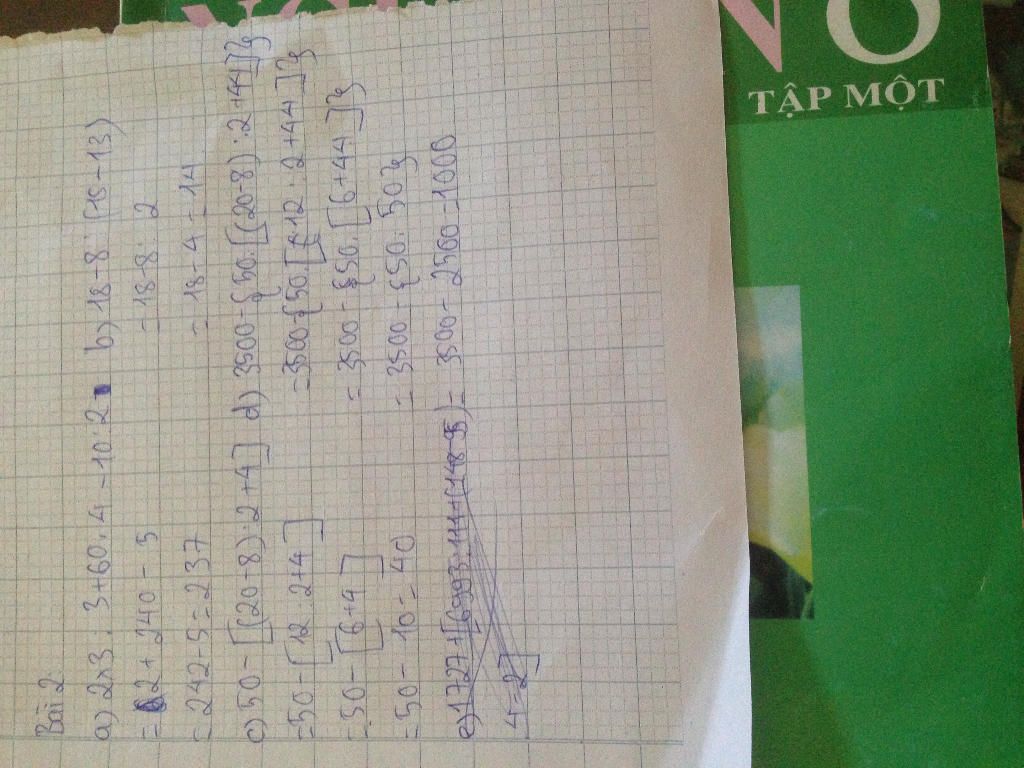 Bài 2
a) 2×3 : 3 + 60 . 4 - 10 : 2 b) 18 - 8 : (15 - 13)
= 2 + 240 - 5 = 18 - 8 : 2
= 242 - 5 = 237 = 18 - 4 = 14
c) 50 - [(20 + 8) : 2 + 4] d) 3500 - { 50 . [(20 - 8) : 2 + 44]}
= 50 - [12 : 2 + 4] = 3500 - {50 . [12 : 2 + 44]}
= 50 - [6 + 4] = 3500 - {50 . [6 + 44]}
= 50 - 10 = 40 = 3500 - {50 . 50}
= 3500 - 2500 = 1000
TẬP MỘT